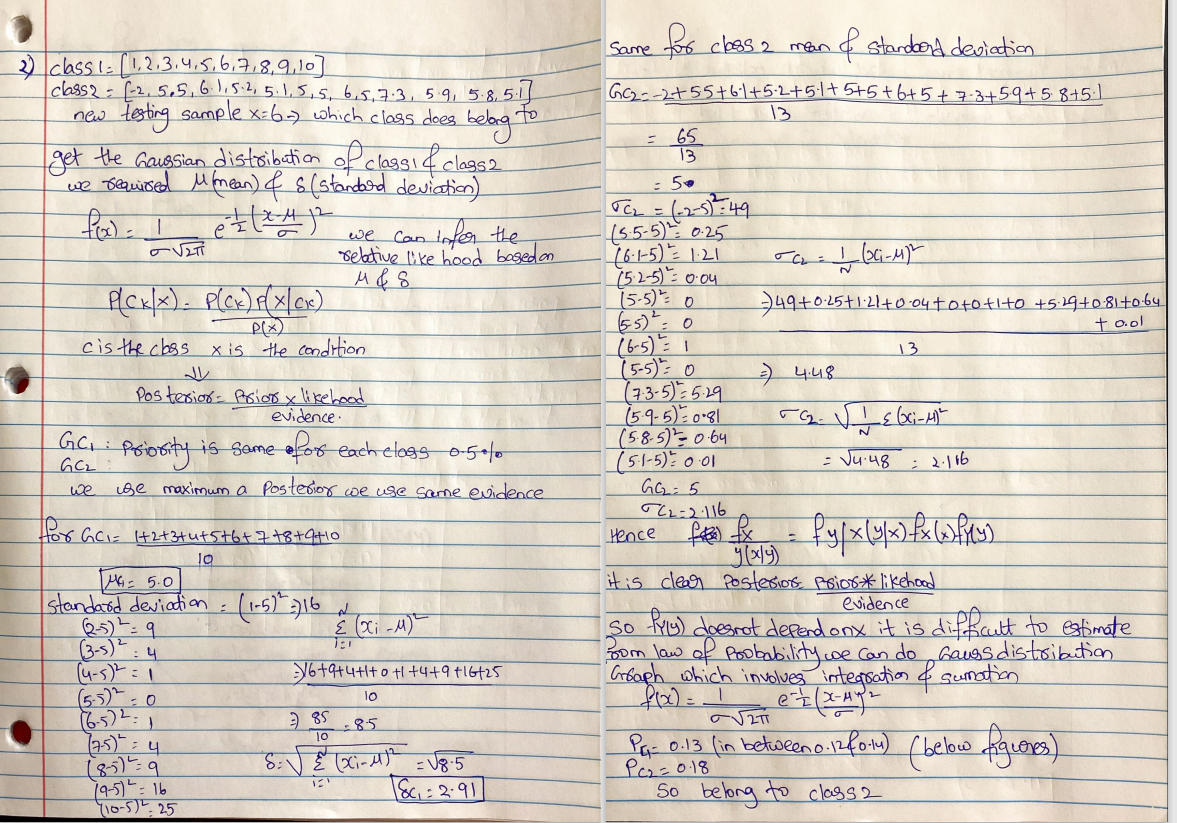 2) class1= [1,2,3,4,5,6,7,8,9,10]
class2 = [-2, 5.5, 6.1, 5.2, 5.1, 5,5, 6,5,7.3, 5.9, 5.8,5.1]
new testing sample x=6→ which class does belong to
get the Gaussian distribution of class1 & class2
we required μ(mean) & δ (standard deviation)
f(x) = 1/σ√2π e^-1/2(x-μ/σ)²
we can infer the
relative like hood based on
μ & δ
P(Ck|x) = P(Ck) P(x|Ck)
P(x)
c is the class x is the condition
⇓
Posterior= Prior x likehood
evidence.
GC1 : Priority is same for each class 0.5%
GC2
we use maximum a Posterior we use same evidence
for GC1= 1+2+3+4+5+6+7+8+9+10
10
μ4= 5.0
standard deviation = (1-5)²⇒16
(2-5)²= 9
(3-5)²= 4
(4-5)² = 1
(5-5)² = 0
(6-5)² = 1
(7-5)² = 4
(8-5)² = 9
(9-5)² = 16
(10-5)² = 25
N Σ i=1 (xi - μ)²
⇒16+9+4+1+0+1+4+9+16+25
10
⇒ 85/10 = 8.5
δ= √ Σ i=1 (xi-μ)² = √8.5
δc1 = 2.91
Same for class 2 mean & standard deviation
GC2= -2+55+6.1+5.2+5.1+5+5+6+5 + 7.3+5.9+5.8+5.1
13
= 65
13
= 5
σC2 = (-2-5)²=49
(5.5-5)²= 0.25
(6.1-5)²= 1.21
(5.2-5)²= 0.04
(5-5)²= 0
(5-5)²= 0
(6-5)²= 1
(5-5)²= 0
(7.3-5)²=5.29
(5.9-5)²=0.81
(5.8-5)²= 0.64
(5.1-5)²= 0.01
σC2 = 1/N (xi-μ)²
⇒49+0.25+1.21+0.04+0+0+1+0 +5.29+0.81+0.64
+ 0.01
13
⇒ 4.48
σC2= √1/N Σ(xi-μ)²
= √4.48 = 2.116
GC2= 5
σC2=2.116
Hence fx = fy|x(y|x) fx(x) fy(y)
y(x|y)
it is clear Posterior= Prior*likehood
evidence
so fy(y) doesnot depend onx it is difficult to estimate
from law of Probability we can do Gauss distribution
Graph which involves integration & sumation
f(x) = 1/σ√2π e^-1/2(x-μ/σ)²
PC1= 0.13 (in between 0.12&0.14) (below figures)
PC2= 0.18
So belong to class2